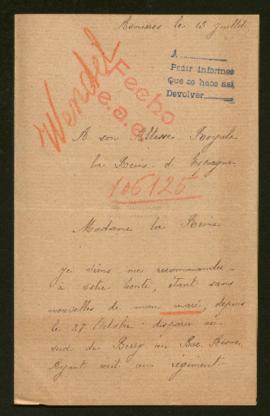 Asnières le 13 Juillet
A
Pedir informes
Que se hace así
Devolver
Wendel
Fecho
e.a.e.
A son Altesse Royale
la Reine d'Espagne
106125
Madame la Reine
Je viens me recommander
à votre bonté, étant sans
nouvelles de mon mari, depuis
le 27 Octobre disparu au
sud de Berry au Bac Aisne,
Ayant écrit au régiment